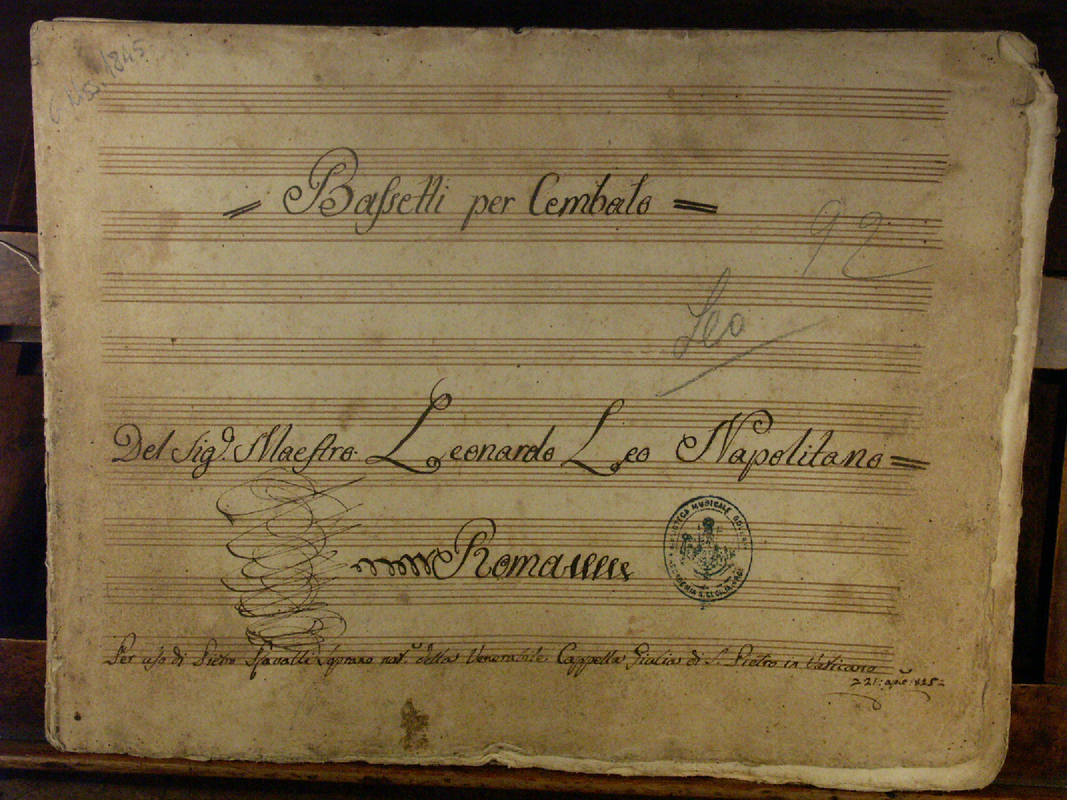 1845
= Bassetti per Cembalo =
92
Leo
Del Sig.e Maestro Leonardo Leo Napolitano =
Roma
BIBLIOTECA MUSICALE GOVERN.
ACCADEMIA S. CECILIA
Per uso di Pietro Soprano nat.e della Venerabile Cappella Giulia di S. Pietro in Vaticano